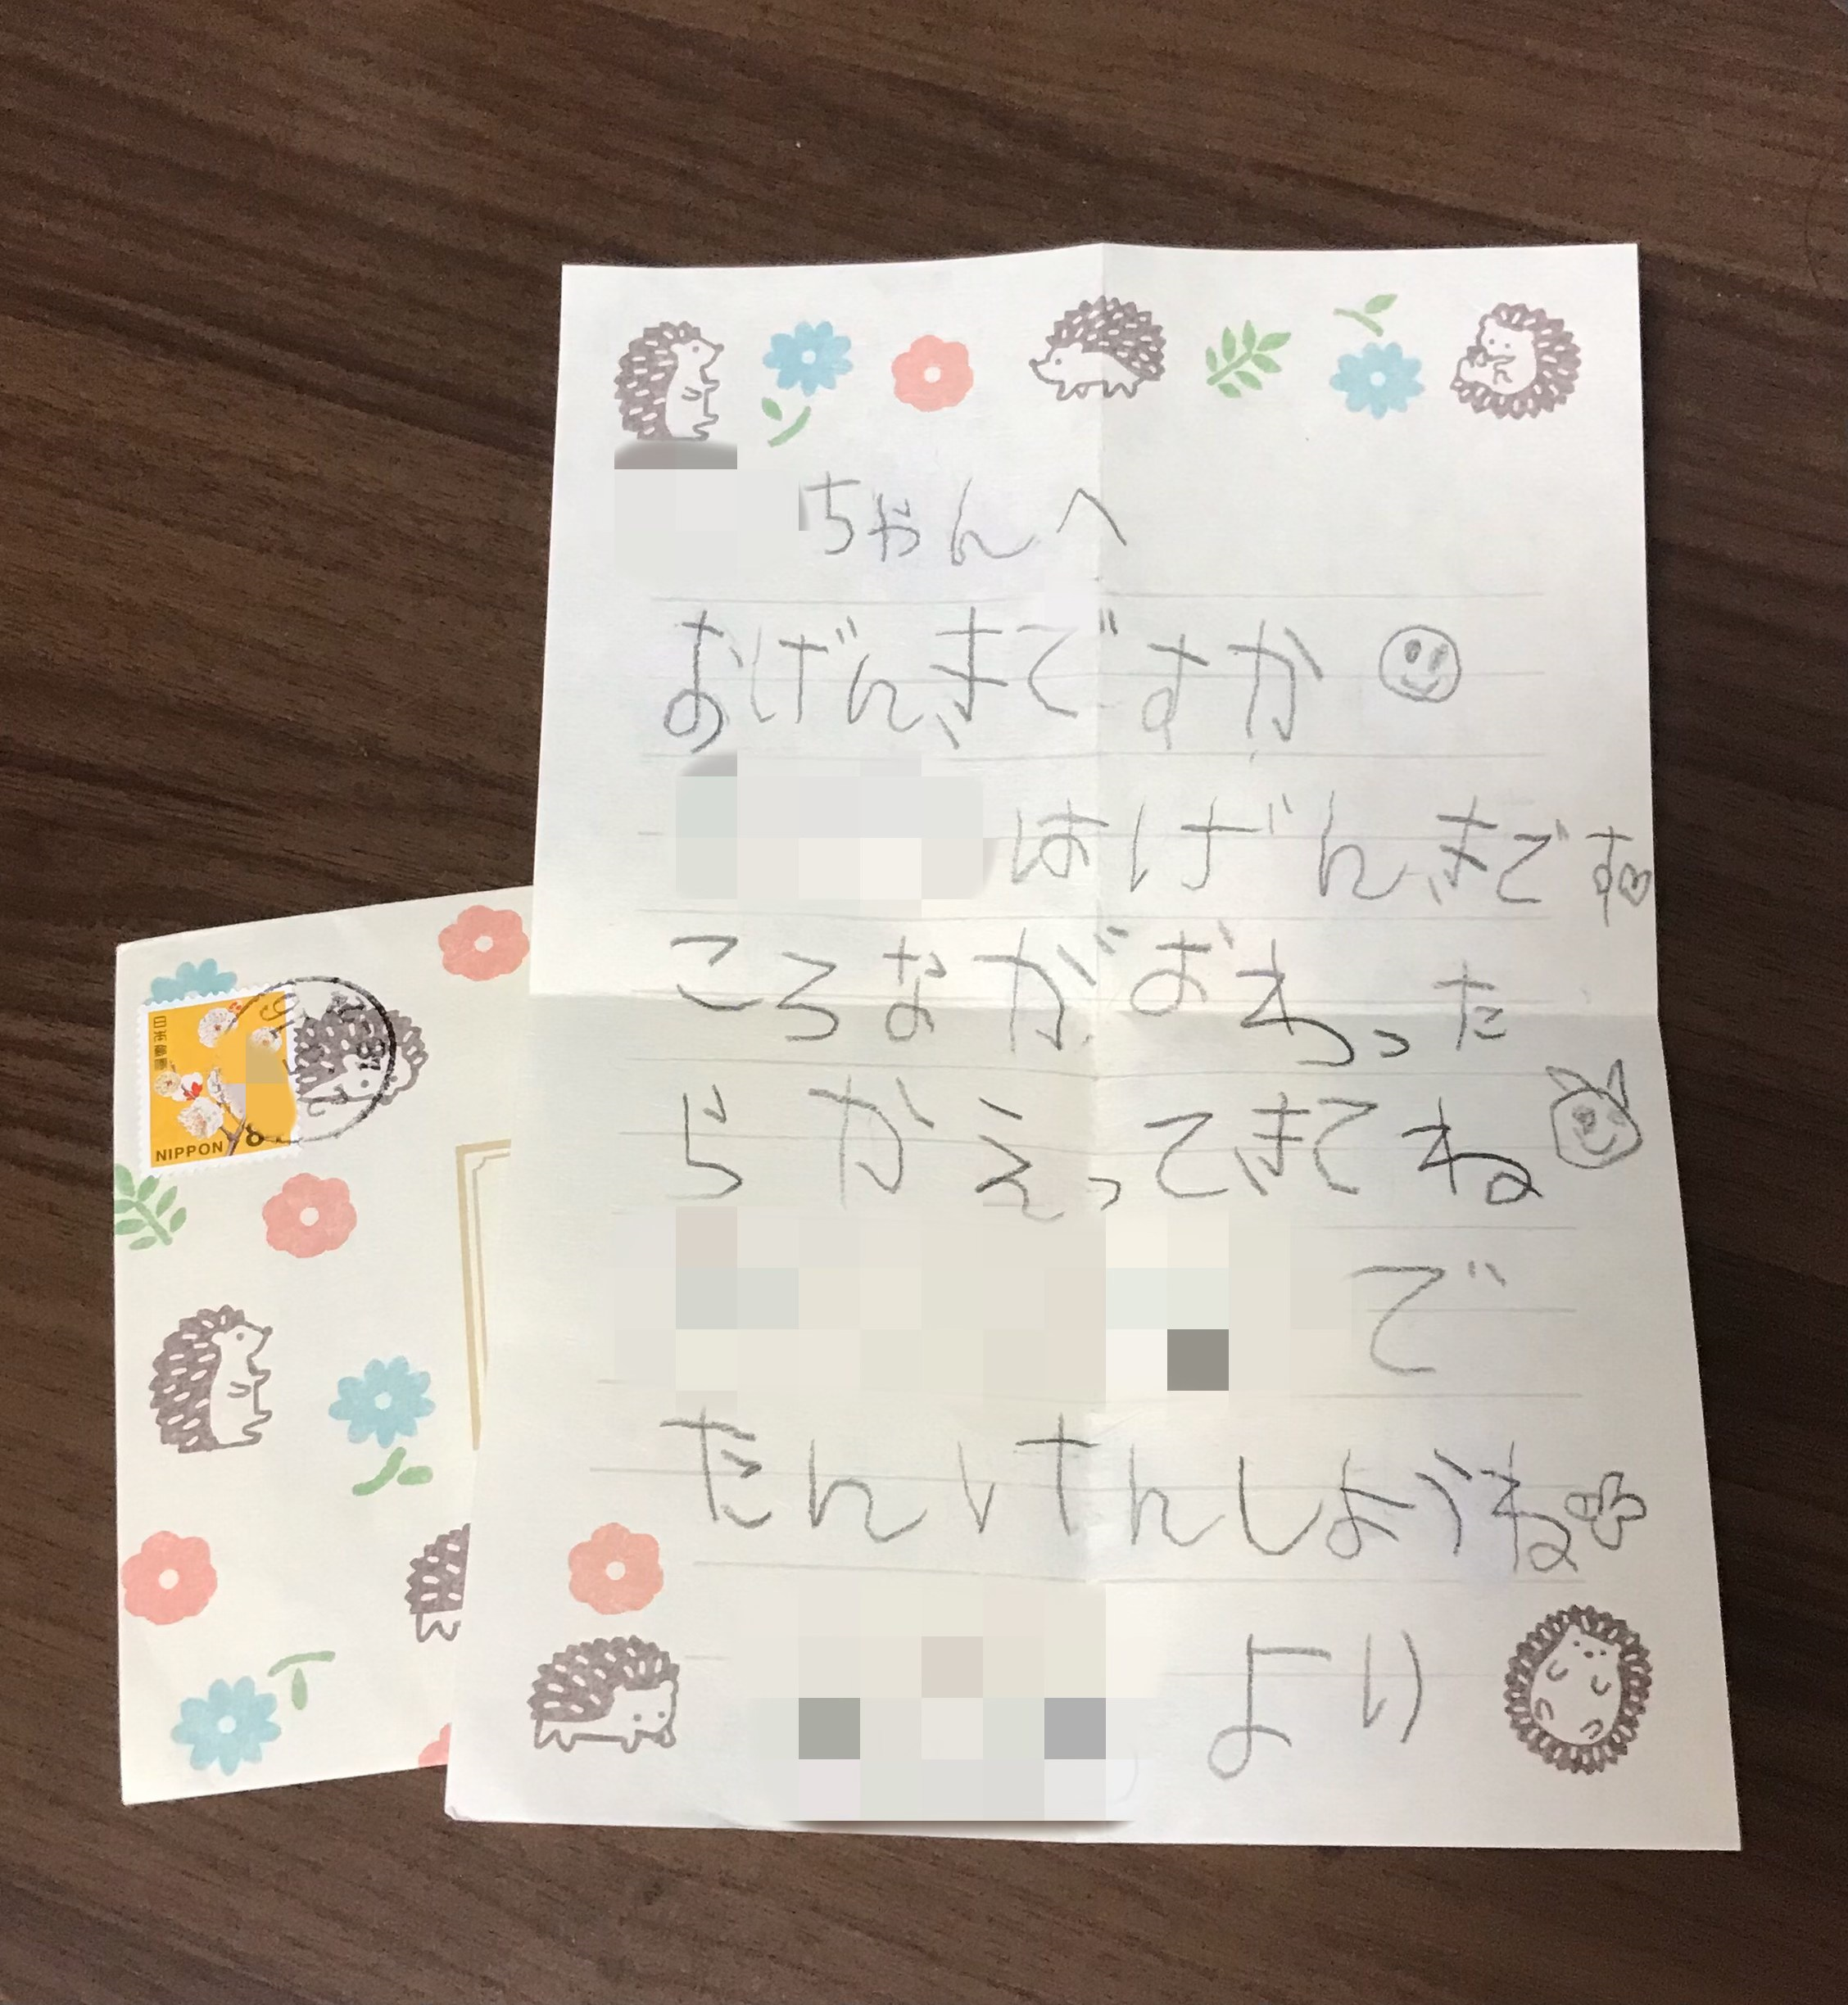 ちゃんへ
おげんきですか
はげんきです
ころながおわった
らかえってきてね
で
たんけんしようね
より
日本郵便
NIPPON